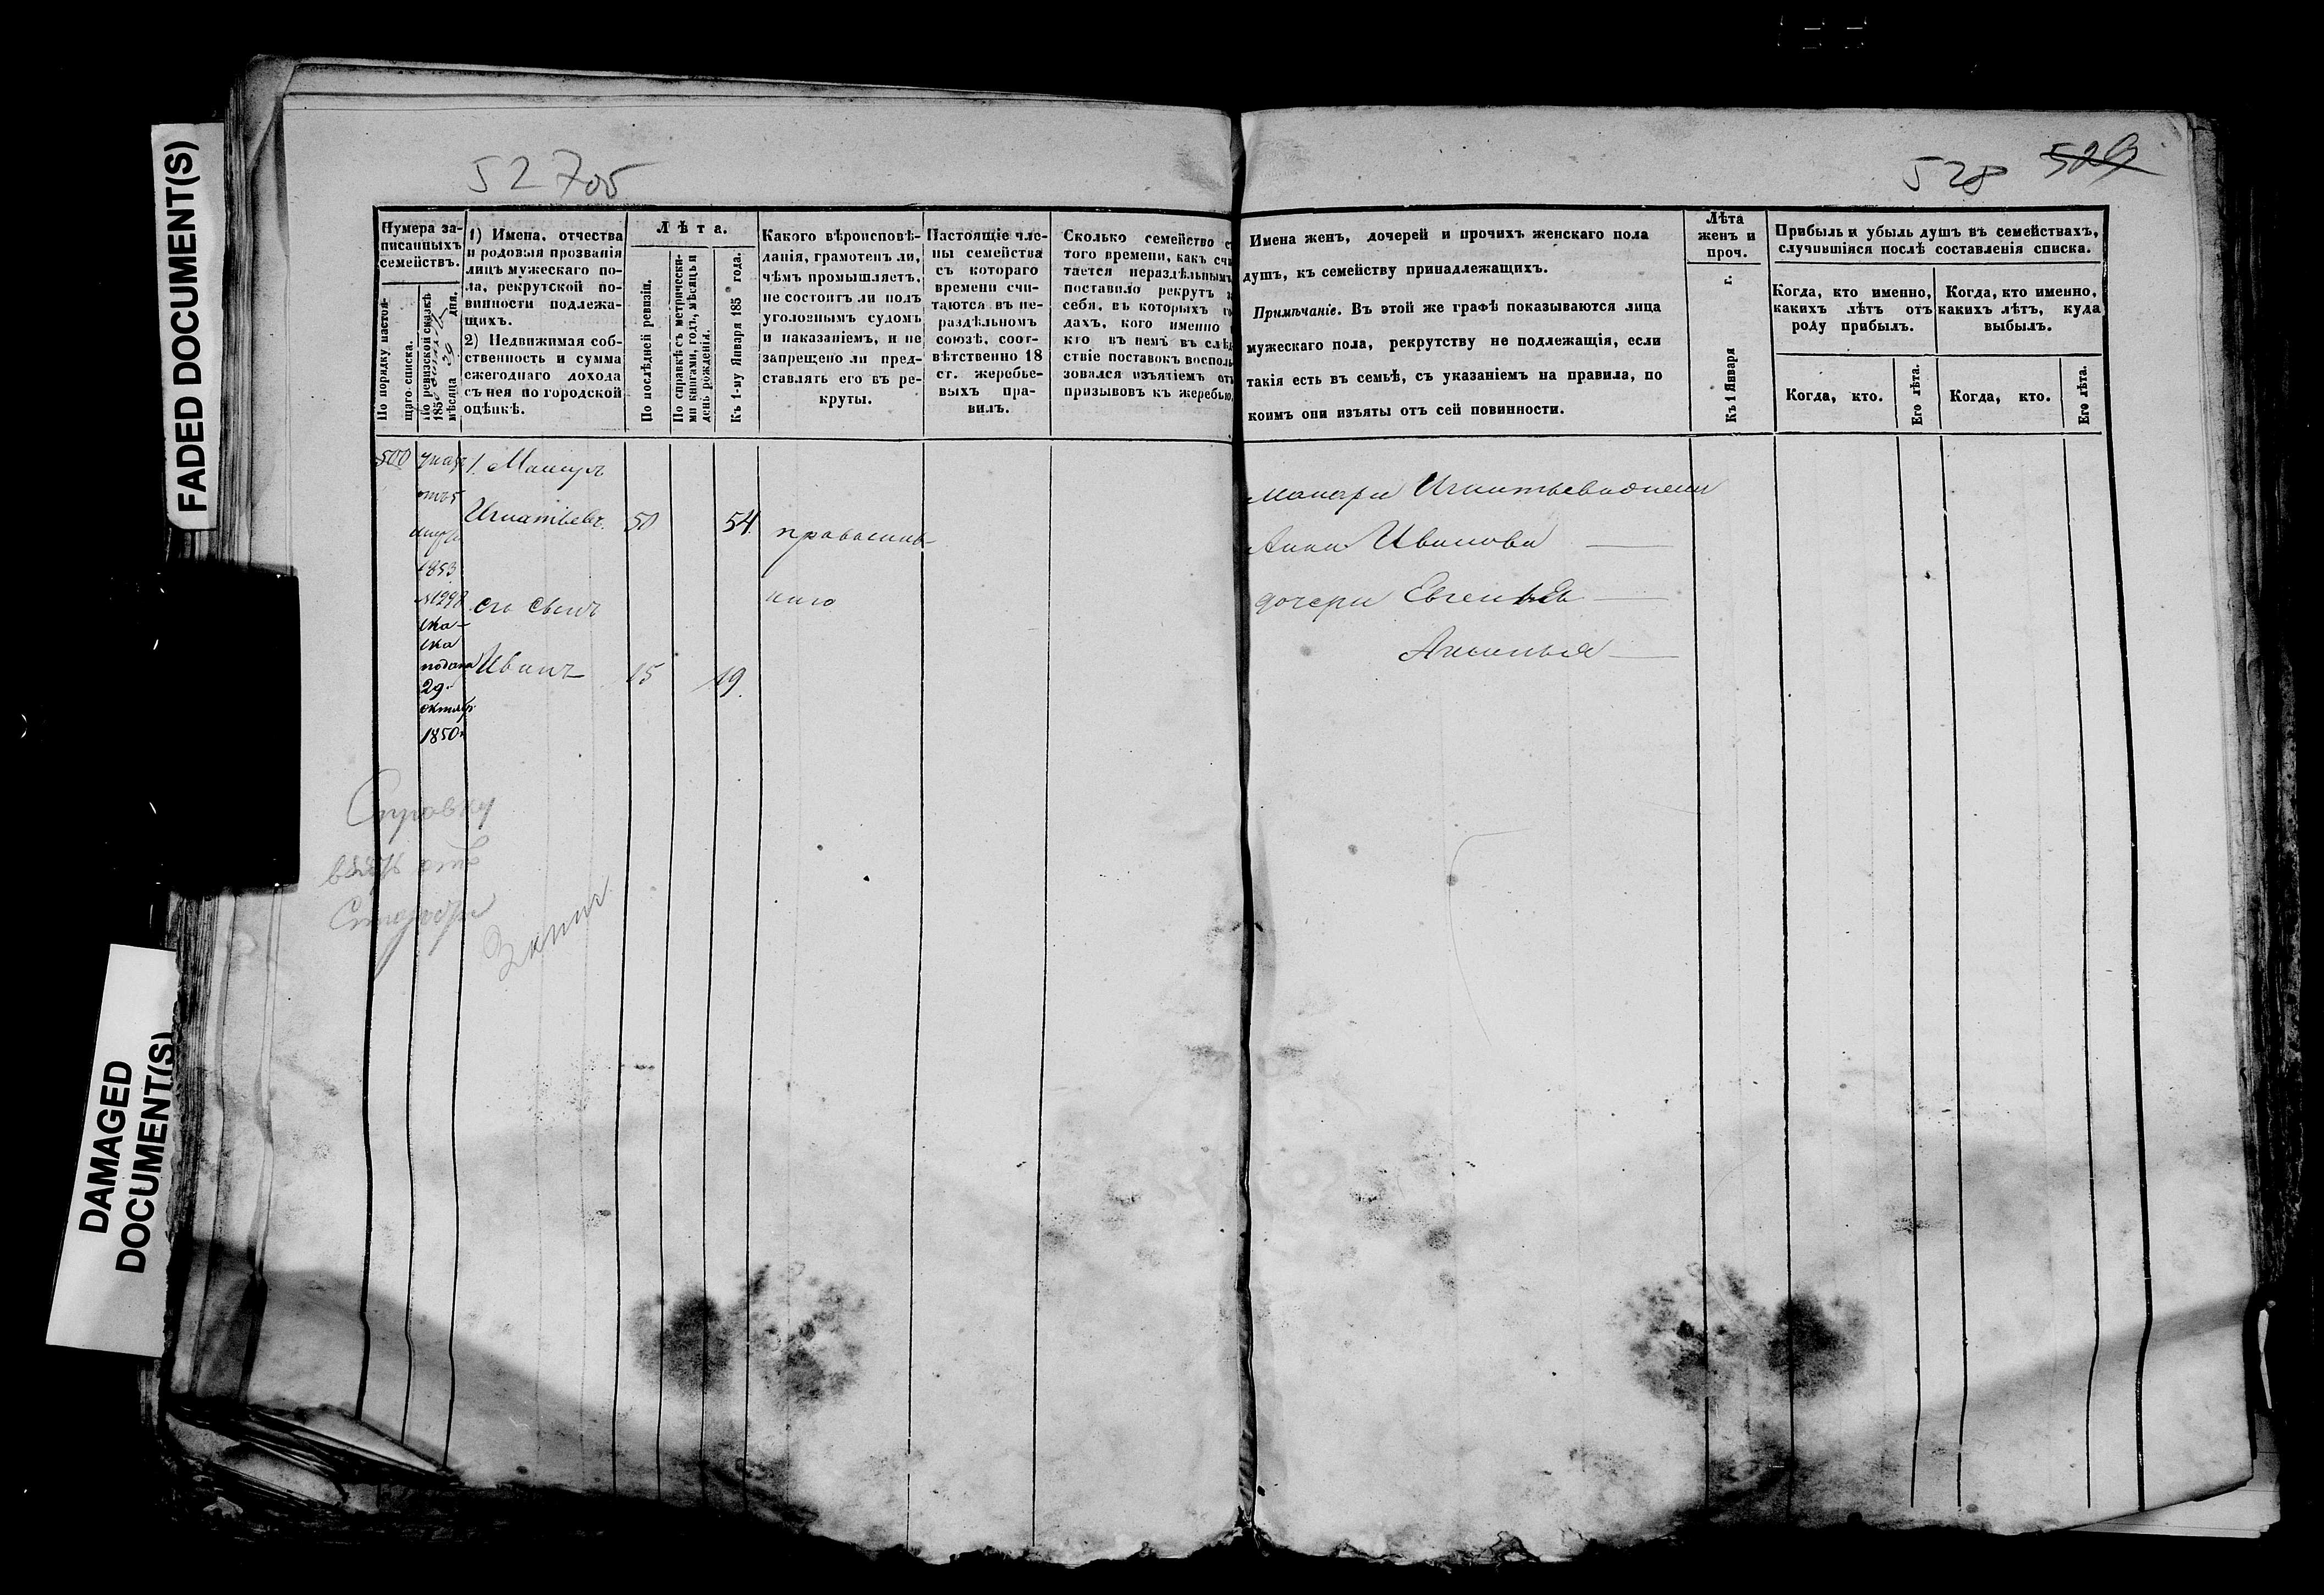 FADED DOCUMENT(S)
DAMAGED
DOCUMENT(S)
527об
528 529
Нумера за-
писанныхъ
семействъ.
По порядку настоя-
щаго списка.
По ревизской сказкѣ
185
мѣсяца 29 дня.
1) Имена, отчества
и родовыя прозванія
лицъ мужескаго по-
ла, рекрутской по-
винности подлежа-
щихъ.
2) Недвижимая соб-
ственность и сумма
ежегоднаго дохода
съ нея по городской
оцѣнкѣ.
Лѣта.
По послѣдней ревизіи.
По справкѣ съ метрически-
ми книгами, годъ, мѣсяцъ и
день рожденія.
Къ 1-му Января 185 года.
Какого вѣроисповѣ-
данія, грамотенъ ли,
чѣмъ промышляетъ,
не состоитъ ли подъ
уголовнымъ судомъ
и наказаніемъ, и не
запрещено ли пред-
ставлять его въ ре-
круты.
Настоящіе чле-
ны семейства
съ котораго
времени счи-
таются въ не-
раздѣльномъ
союзѣ, соот-
вѣтственно 18
ст. жеребье-
выхъ пра-
вилъ.
Сколько семейство с
того времени, какъ счи
тается нераздѣльнымъ
поставило рекрутъ з
себя, въ которыхъ го
дахъ, кого именно
кто въ немъ въ слѣд
ствіе поставокъ восполь
зовался изъятіемъ отъ
призывовъ къ жеребью.
Имена женъ, дочерей и прочихъ женскаго пола
душъ, къ семейству принадлежащихъ.
Примѣчаніе. Въ этой же графѣ показываются лица
мужескаго пола, рекрутству не подлежащія, если
такія есть въ семьѣ, съ указаніемъ на правила, по
коимъ они изъяты отъ сей повинности.
Лѣта
женъ и
проч.
Къ 1 Января г.
Прибыль и убыль душъ въ семействахъ,
случившіяся послѣ составленія списка.
Когда, кто именно,
какихъ лѣтъ отъ
роду прибылъ.
Когда, кто именно,
какихъ лѣтъ, куда
выбылъ.
Когда, кто.
Его лѣта.
Когда, кто.
Его лѣта.
500
1853
№1298
ска-
ска
подана
29
октяб
1850
1.
Игнатьевъ. 50 54
православ-
наго
его сынъ
Иванъ 15 19
Игнатьева жена
Анна Иванова —
дочери Евгенья —
—
Справку
взять отъ